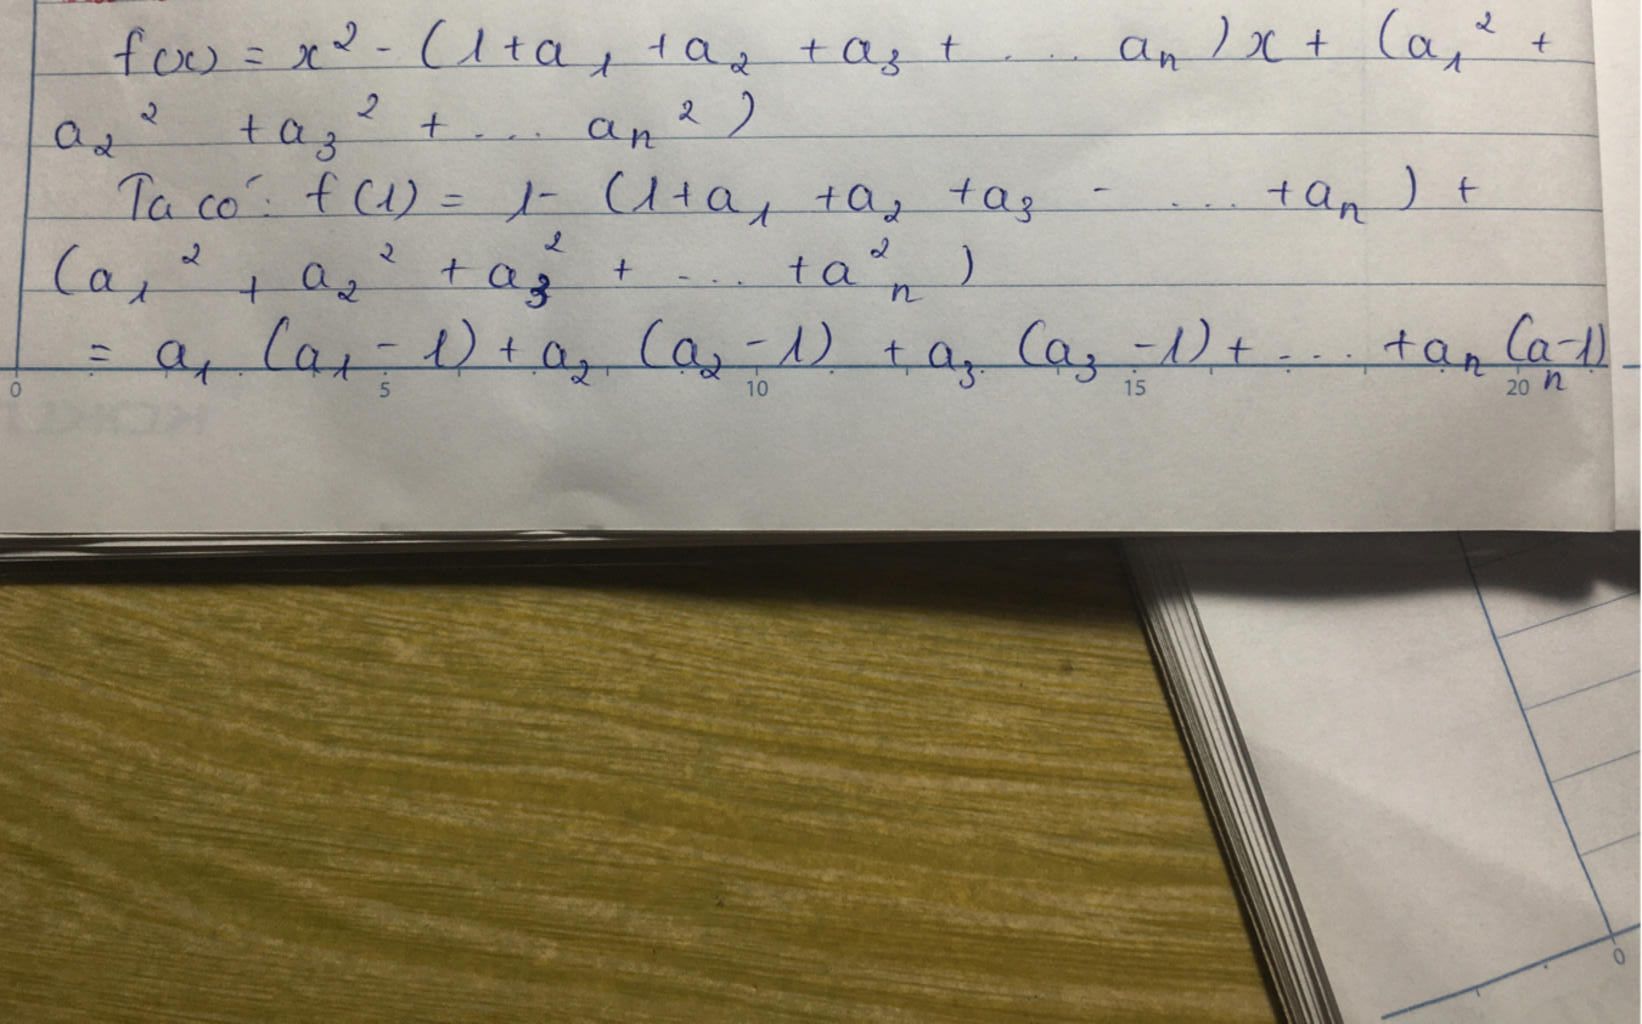 f(x) = x² - (1 + a₁ + a₂ + a₃ + .... aₙ) x + (a₁² +
a₂² + a₃² + ... aₙ²)
Ta có: f(1) = 1 - (1 + a₁ + a₂ + a₃ - ... + aₙ) +
(a₁² + a₂² + a₃² + ... + a²ₙ)
= a₁ (a₁ - 1) + a₂ (a₂ - 1) + a₃ (a₃ - 1) + .... + aₙ (aₙ - 1)
0 5 10 15 20
0